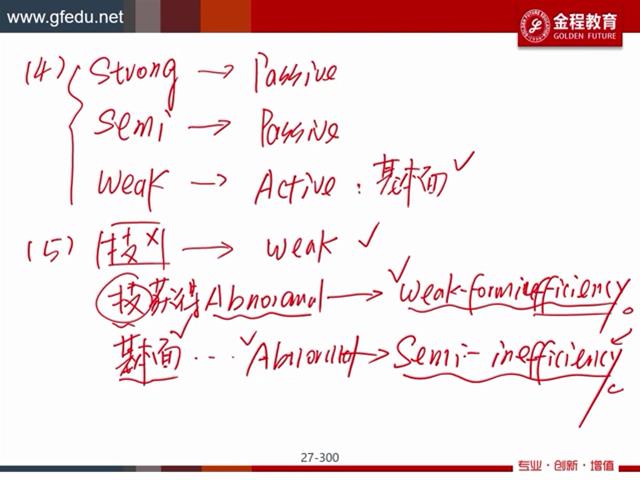 www.gfedu.net
金程教育
GOLDEN FUTURE
(4) Strong → Passive
Semi → Passive
Weak → Active : 基本面 ✓
(5) 技× → weak ✓
技获得Abnormal → ✓ Weak-form inefficiency
基本面 ✓ ... ✓ Abnormal → Semi- inefficiency
27-300
专业·创新·增值